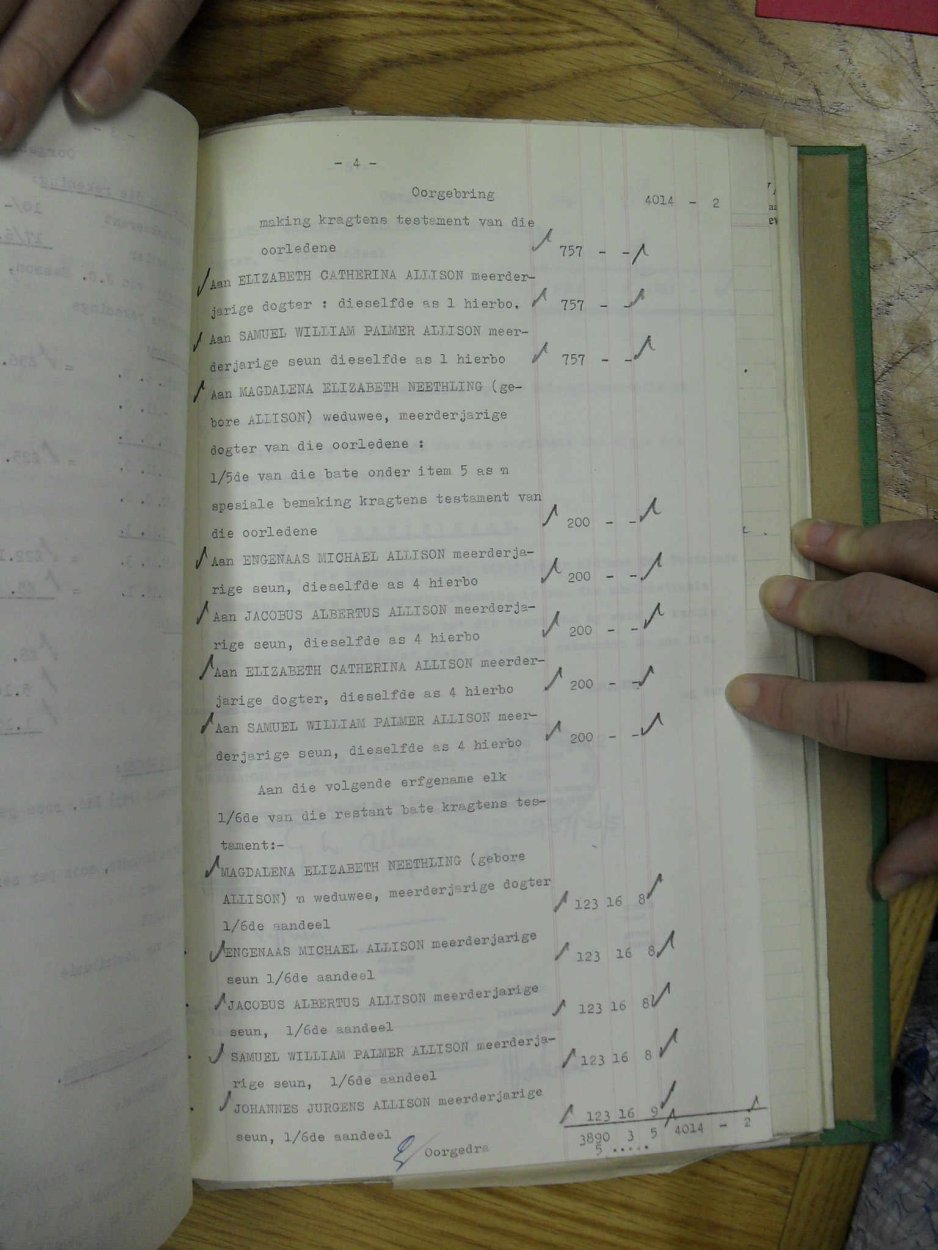 - 4 -
Oorgebring 4014 - 2
making kragtens testament van die
oorledene 757 - -
Aan ELIZABETH CATHERINA ALLISON meerder-
jarige dogter : dieselfde as 1 hierbo. 757 - -
Aan SAMUEL WILLIAM PALMER ALLISON meer-
derjarige seun dieselfde as 1 hierbo 757 - -
Aan MAGDALENA ELIZABETH NEETHLING (ge-
bore ALLISON) weduwee, meerderjarige
dogter van die oorledene :
1/5de van die bate onder item 5 as n
spesiale bemaking kragtens testament van
die oorledene 200 - -
Aan ENGENAAS MICHAEL ALLISON meerderja-
rige seun, dieselfde as 4 hierbo 200 - -
Aan JACOBUS ALBERTUS ALLISON meerderja-
rige seun, dieselfde as 4 hierbo 200 - -
Aan ELIZABETH CATHERINA ALLISON meerder-
jarige dogter, dieselfde as 4 hierbo 200 - -
Aan SAMUEL WILLIAM PALMER ALLISON meer-
derjarige seun, dieselfde as 4 hierbo 200 - -
Aan die volgende erfgename elk
1/6de van die restant bate kragtens tes-
tament:-
MAGDALENA ELIZABETH NEETHLING (gebore
ALLISON) n weduwee, meerderjarige dogter
1/6de aandeel 123 16 8
ENGENAAS MICHAEL ALLISON meerderjarige
seun 1/6de aandeel 123 16 8
JACOBUS ALBERTUS ALLISON meerderjarige
seun, 1/6de aandeel 123 16 8
SAMUEL WILLIAM PALMER ALLISON meerderja-
rige seun, 1/6de aandeel 123 16 8
JOHANNES JURGENS ALLISON meerderjarige
seun, 1/6de aandeel 123 16 9
Oorgedra 3890 3 5 4014 - 2
5 .....